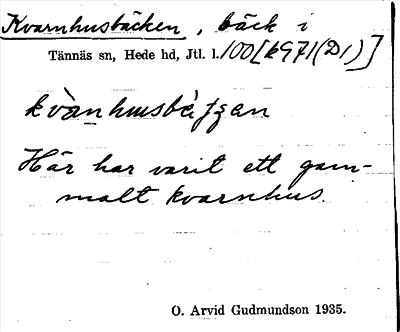 Kvarnhusbäcken, bäck i
Tännäs sn, Hede hd, Jtl. l. 100 [k971(D1)]
Här har varit ett gam-
malt kvarnhus.
O. Arvid Gudmundson 1935.